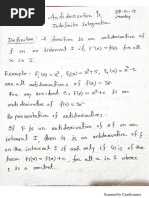 Antiderivative &
Indefinite Integration
Monday
Definition: A function is an antiderivative of
f on an interval I if, F'(x) = f(x) for all
x in I.
Example: F₁(x) = x³, F₂(x) = x³-5,
are antiderivatives of f(x) = 3x²
For any constant C, F(x) = x³ + C
is an antiderivative of f(x) = 3x².
Representation of antiderivatives:
If F is an antiderivative of f on an
interval I, then G is an antiderivative of
f on the interval I, if G is of the
form G(x) = F(x) + C, for all x in I where
C is a constant.
Scanned by CamScanner